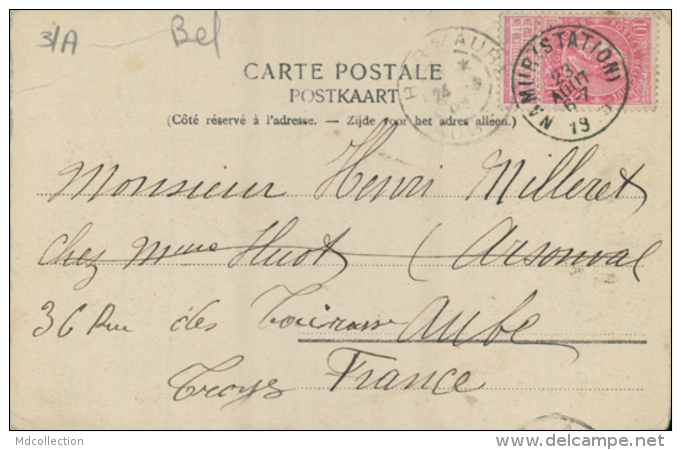 3/A
Bel
CARTE POSTALE
POSTKAART
(Côté réservé à l'adresse. — Zijde voor het adres alléén.)
BAR S/AUBE
24
NAMUR (STATION)
23
AOUT
6-7
19
10
Monsieur Henri Milleret
chez Mme Huot (Arsonval
36 Rue des Aube
Troyes France
Mdcollection
www.delcampe.net